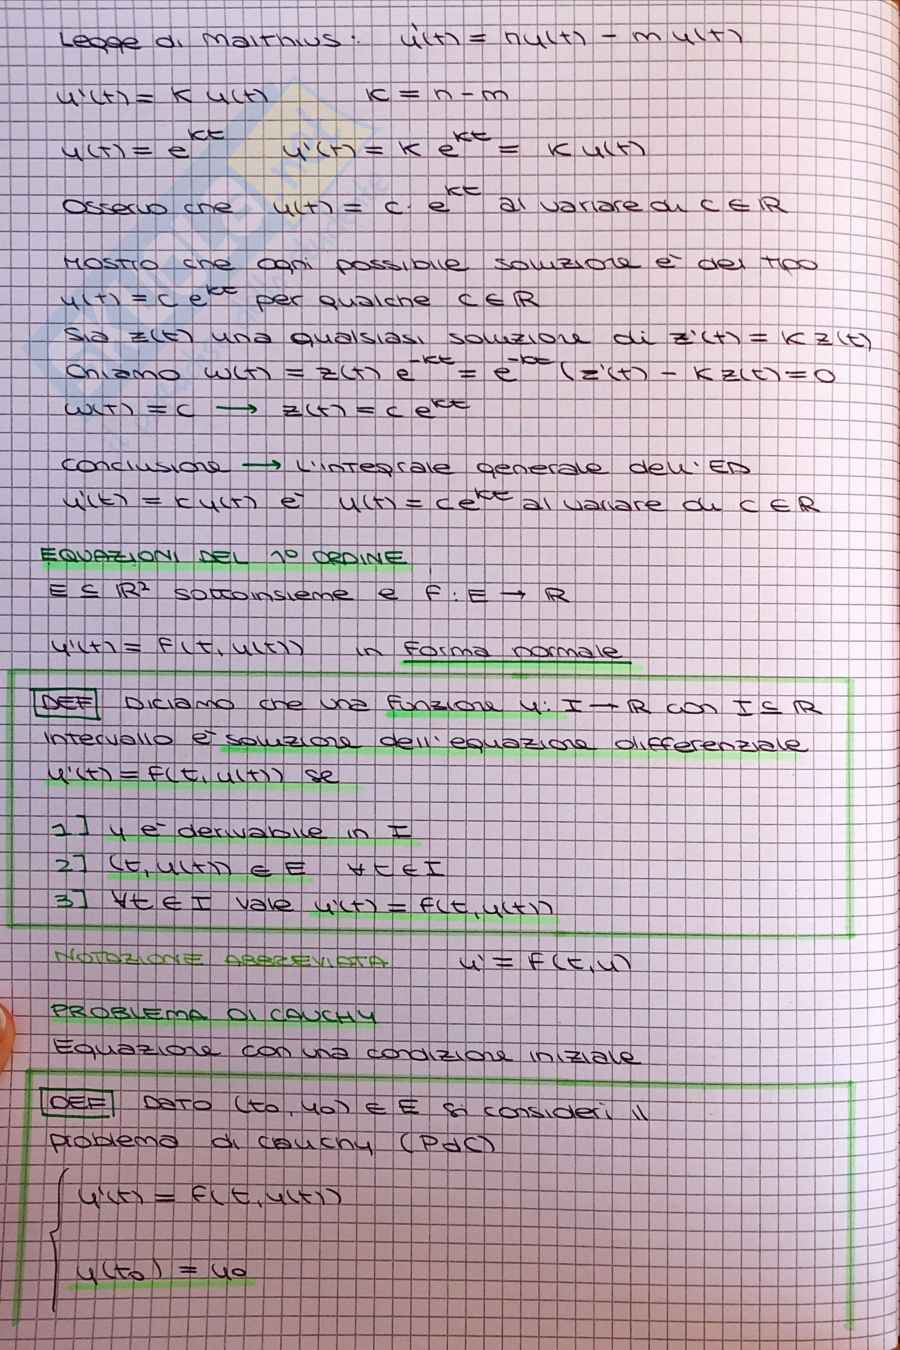 Legge di Malthus: u'(t) = nu(t) - m u(t)
u'(t) = K u(t) K = n - m
u(t) = e^Kt u'(t) = K e^Kt = K u(t)
Osservo che u(t) = c · e^Kt al variare di C ∈ ℝ
Mostro che ogni possibile soluzione è del tipo
u(t) = c e^Kt per qualche C ∈ ℝ
Sia z(t) una qualsiasi soluzione di z'(t) = K z(t)
Chiamo w(t) = z(t) e^-Kt = e^-Kt (z'(t) - K z(t) = 0
w(t) = c → z(t) = c e^Kt
Conclusione → L'integrale generale dell' ED
u'(t) = c u(t) è u(t) = c e^Kt al variare di C ∈ ℝ
EQUAZIONI DEL 1° ORDINE
E ⊆ ℝ² sottoinsieme e F : E → ℝ
u'(t) = F(t, u(t)) in forma normale
DEF Diciamo che una funzione u: I → ℝ con I ⊆ ℝ
intervallo è soluzione dell'equazione differenziale
u'(t) = F(t, u(t)) se
1] u è derivabile in I
2] (t, u(t)) ∈ E ∀t ∈ I
3] ∀t ∈ I vale u'(t) = F(t, u(t))
NOTAZIONE ABBREVIATA u' = F(t, u)
PROBLEMA DI CAUCHY
Equazione con una condizione iniziale
DEF Dato (t0, u0) ∈ E si consideri il
problema di Cauchy (PdC)
{ u'(t) = F(t, u(t))
u(t0) = u0